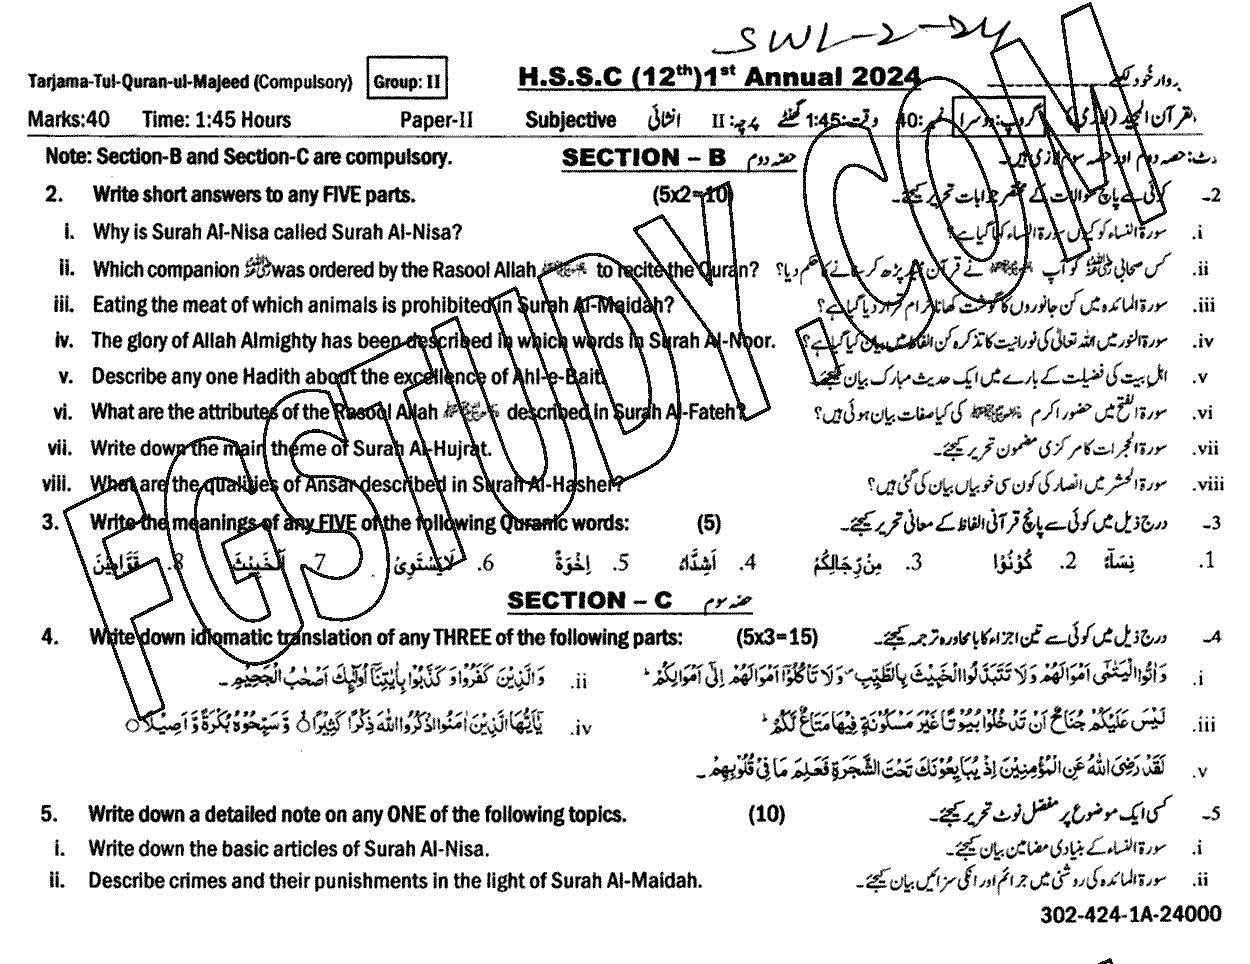 SWL-2-24
Tarjama-Tul-Quran-ul-Majeed (Compulsory) Group: II H.S.S.C (12th)1st Annual 2024
Marks:40 Time: 1:45 Hours Paper-II Subjective انشائی پرچہ: II وقت: 1:45 گھنٹے گروپ: دوسرا
Note: Section-B and Section-C are compulsory. SECTION – B حصہ دوم
2. Write short answers to any FIVE parts. (5x2=10) کوئی سے پانچ سوالات کے مختصر جوابات تحریر کیجئے۔ 2-
i. Why is Surah Al-Nisa called Surah Al-Nisa? سورۃ النساء کو کیوں سورۃ النساء کہا گیا ہے؟ .i
ii. Which companion was ordered by the Rasool Allah to recite the Quran? کس صحابی کو آپ نے قرآن مجید پڑھ کر سنانے کا حکم دیا؟ .ii
iii. Eating the meat of which animals is prohibited in Surah Al-Maidah? سورۃ المائدہ میں کن جانوروں کا گوشت کھانا حرام قرار دیا گیا ہے؟ .iii
iv. The glory of Allah Almighty has been described in which words in Surah Al-Noor. سورۃ النور میں اللہ تعالیٰ کی نورانیت کا تذکرہ کن الفاظ میں بیان کیا گیا ہے؟ .iv
v. Describe any one Hadith about the excellence of Ahl-e-Bait. اہل بیت کی فضیلت کے بارے میں ایک حدیث مبارک بیان کیجئے۔ .v
vi. What are the attributes of the Rasool Allah described in Surah Al-Fateh? سورۃ الفتح میں حضور اکرم کی کیا صفات بیان ہوئی ہیں؟ .vi
vii. Write down the main theme of Surah Al-Hujrat. سورۃ الحجرات کا مرکزی مضمون تحریر کیجئے۔ .vii
viii. What are the qualities of Ansar described in Surah Al-Hasher? سورۃ الحشر میں انصار کی کون سی خوبیاں بیان کی گئی ہیں؟ .viii
3. Write the meanings of any FIVE of the following Quranic words: (5) درج ذیل میں کوئی سے پانچ قرآنی الفاظ کے معانی تحریر کیجئے۔ 3-
1. نِسَآءً 2. كُوْنُوْا 3. مِنْ رِّجَالِكُمْ 4. اَشِدَّآءُ 5. اِخْوَةٌ 6. لَا يَسْتَوِىْ 7. اَلْخَبِيْثَ 8. قَوّٰمِيْنَ
SECTION – C حصہ سوم
4. Write down idiomatic translation of any THREE of the following parts: (5x3=15) درج ذیل میں کوئی سے تین اجزاء کا بامحاورہ ترجمہ کیجئے۔ 4-
i. وَاٰتُوا الْيَتٰمٰٓى اَمْوَالَهُمْ وَلَا تَتَبَدَّلُوا الْخَبِيْثَ بِالطَّيِّبِ وَلَا تَاْكُلُوْٓا اَمْوَالَهُمْ اِلٰٓى اَمْوَالِكُمْ ii. وَالَّذِيْنَ كَفَرُوْا وَكَذَّبُوْا بِاٰيٰتِنَآ اُولٰٓئِكَ اَصْحٰبُ الْجَحِيْمِ۔
iii. لَيْسَ عَلَيْكُمْ جُنَاحٌ اَنْ تَدْخُلُوْا بُيُوْتًا غَيْرَ مَسْكُوْنَةٍ فِيْهَا مَتَاعٌ لَّكُمْ iv. يٰٓاَيُّهَا الَّذِيْنَ اٰمَنُوا اذْكُرُوا اللّٰهَ ذِكْرًا كَثِيْرًا وَّسَبِّحُوْهُ بُكْرَةً وَّاَصِيْلًا
v. لَقَدْ رَضِيَ اللّٰهُ عَنِ الْمُؤْمِنِيْنَ اِذْ يُبَايِعُوْنَكَ تَحْتَ الشَّجَرَةِ فَعَلِمَ مَا فِيْ قُلُوْبِهِمْ۔
5. Write down a detailed note on any ONE of the following topics. (10) کسی ایک موضوع پر مفصل نوٹ تحریر کیجئے۔ 5-
i. Write down the basic articles of Surah Al-Nisa. سورۃ النساء کے بنیادی مضامین بیان کیجئے۔ .i
ii. Describe crimes and their punishments in the light of Surah Al-Maidah. سورۃ المائدہ کی روشنی میں جرائم اور انکی سزائیں بیان کیجئے۔ .ii
302-424-1A-24000
FGSTUDY.COM